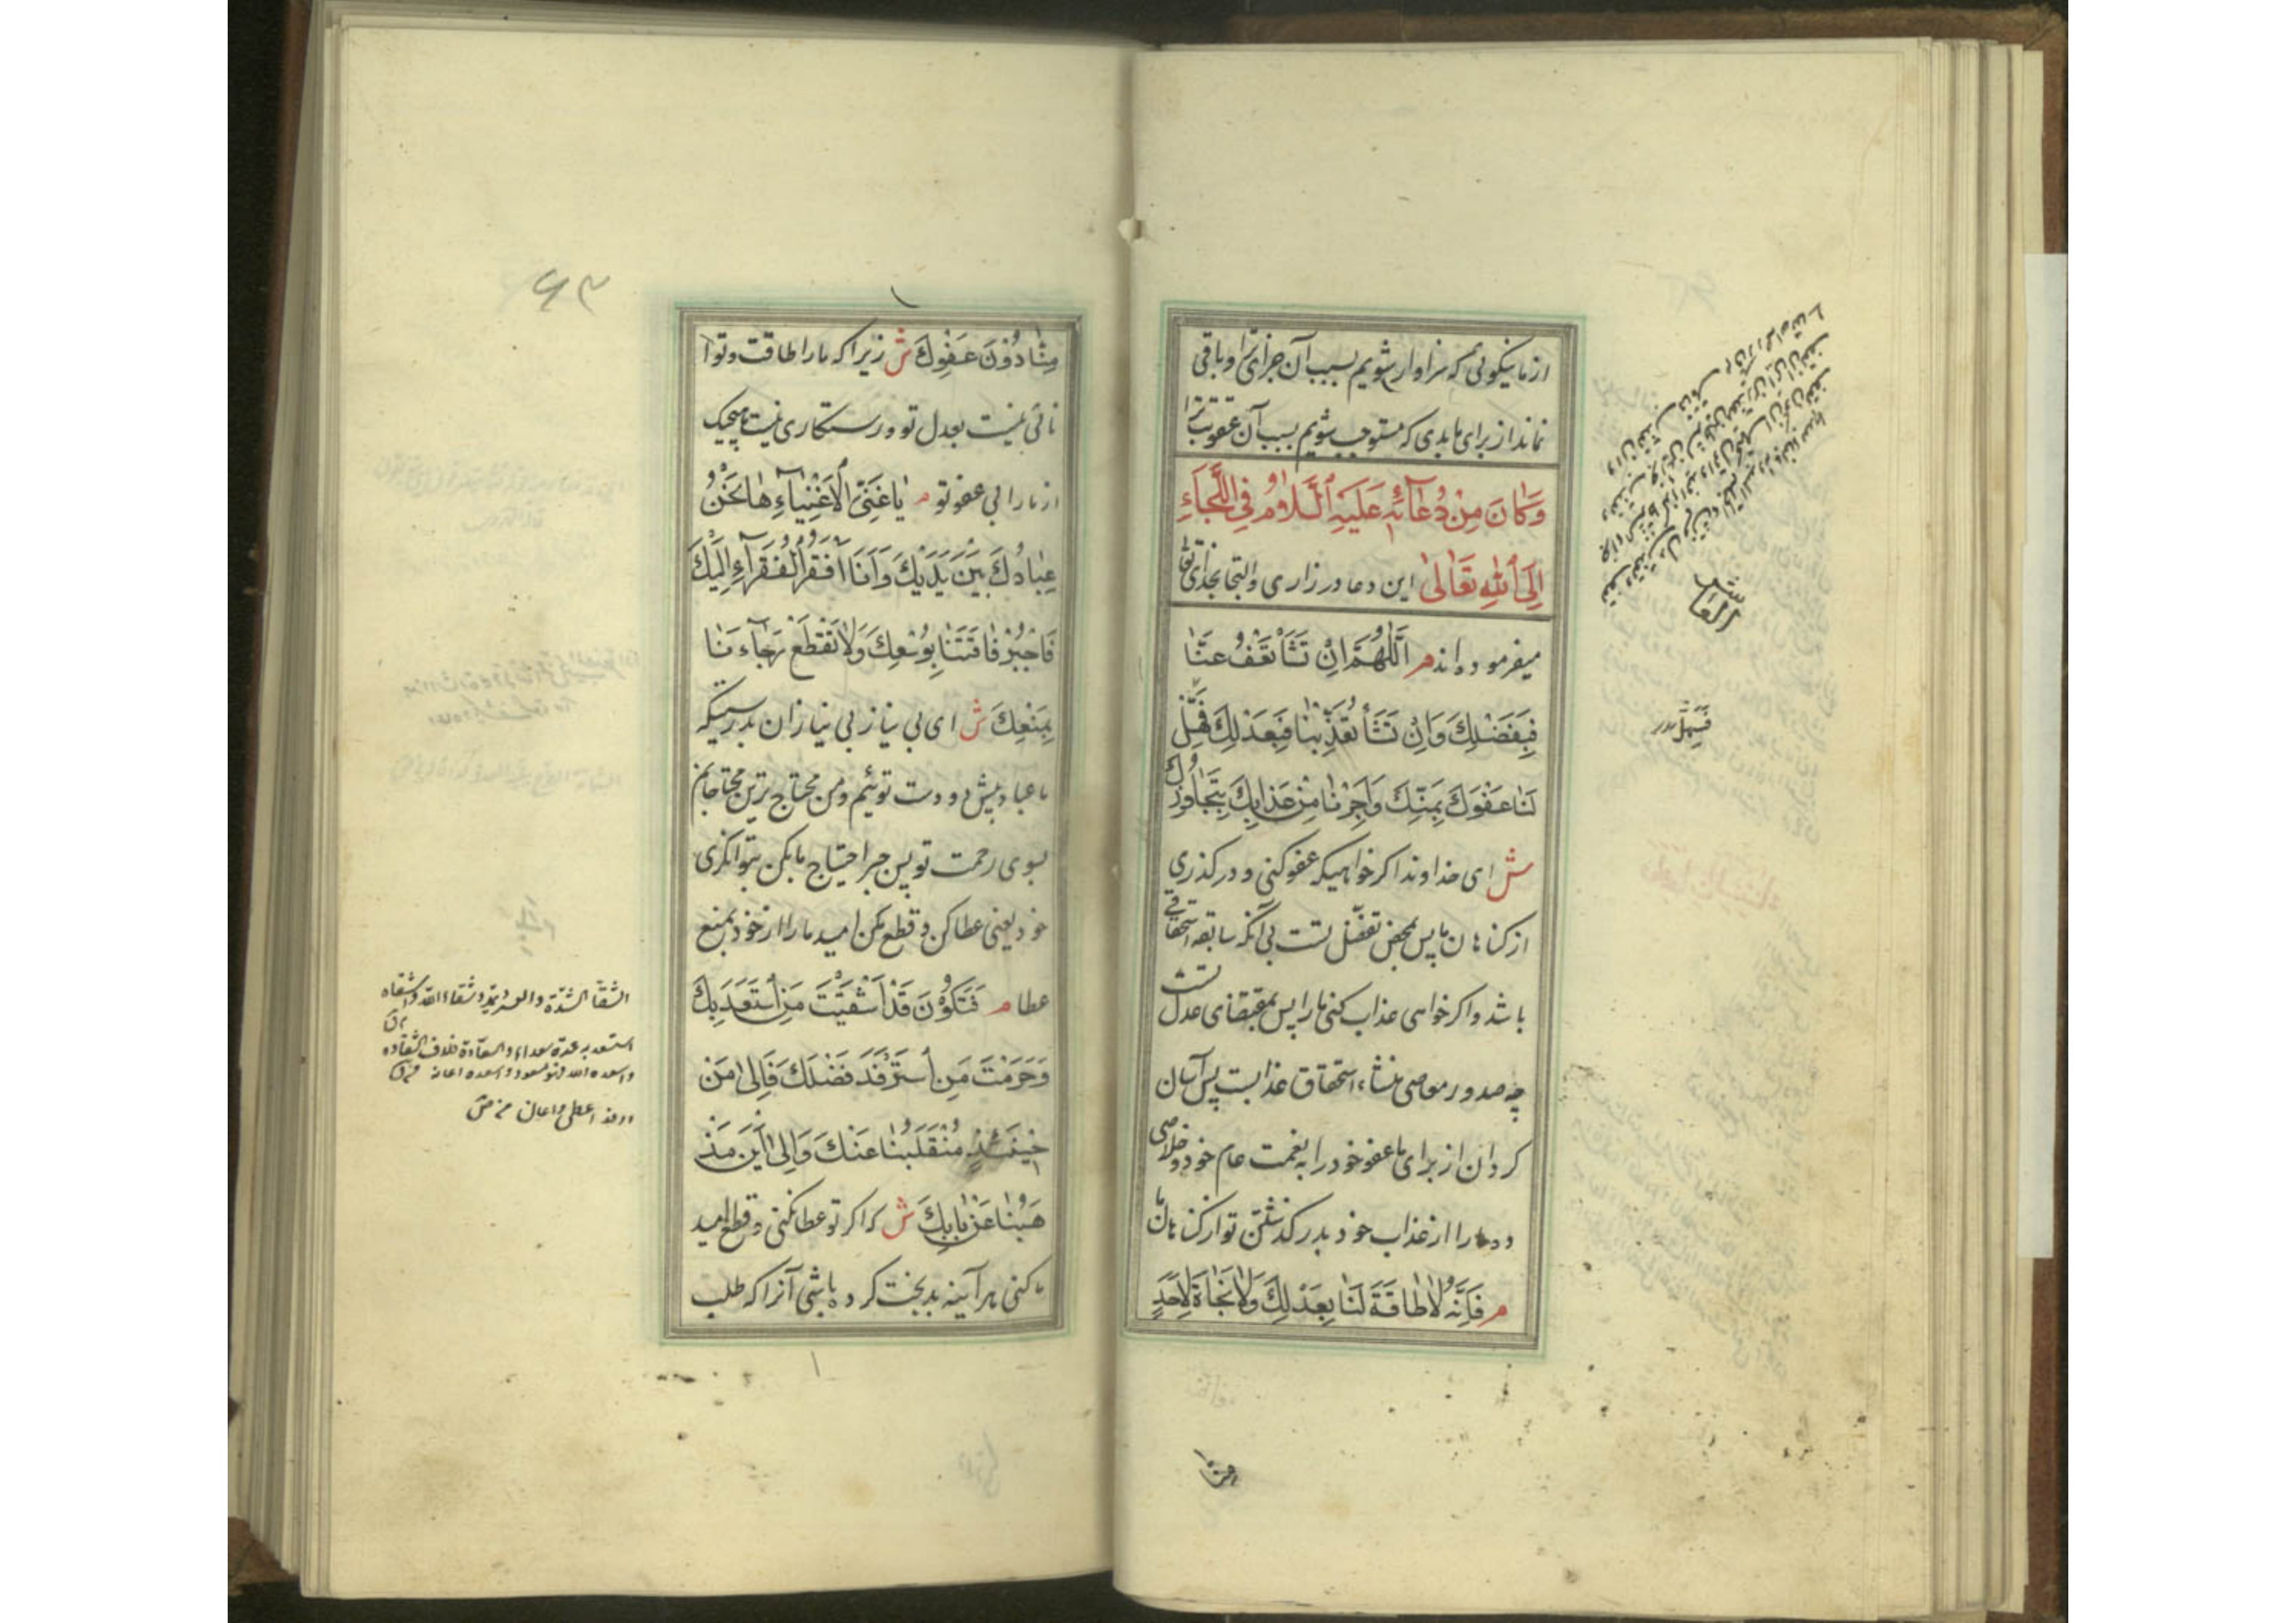 از ما نیکوئی که سزاوار شویم بسبب آن جزای ترا و باقی
نماند از برای ما بدی که مستوجب شویم بسبب آن عقوبت ترا
وَكَانَ مِنْ دُعَآئِهِ عَلَيْهِ السَّلَامُ فِي اللَّجَاءِ
اِلَى اللهِ تَعَالىٰ این دعا در زاری و التجا بخدای تعا
میفرموده اند م اَللّٰهُمَّ اِنْ تَشَأْ تَعْفُ عَنَّا
فَبِفَضْلِكَ وَاِنْ تَشَأْ تُعَذِّبْنَا فَبِعَدْلِكَ فَسَهِّلْ
لَنَا عَفْوَكَ بِمَنِّكَ وَاَجِرْنَا مِنْ عَذَابِكَ بِتَجَاوُزِكَ
ش ای خداوندا اکر خواهیکه عفو کنی و در کذری
از کناهان ما پس بمحض تفضّل تست بی آنکه سابقه استحقاقی
باشد و اکر خواهی عذاب کنی ما را پس بمقتضای عدل تست
چه صدور معاصی منشاء استحقاق عذابست پس آسان
کردان از برای ما عفو خود را به نعمت عام خود و خلاصی
ده ما را از عذاب خود بدر کذشتن تو از کناهان ما
م فَاِنَّهُ لَا طَاقَةَ لَنَا بِعَدْلِكَ وَلَا نَجَاةَ لِاَحَدٍ
منّا
مِنَّا دُوْنَ عَفْوِكَ ش زیرا که ما را طاقت و توا
نائی نیست بعدل تو و رستکاری نیست هیچیک
از ما را بی عفو تو م يَا غَنِيَّ الْاَغْنِيَآءِ هَا نَحْنُ
عِبَادُكَ بَيْنَ يَدَيْكَ وَاَنَا اَفْقَرُ الْفُقَرَآءِ اِلَيْكَ
فَاجْبُرْ فَاقَتَنَا بِوُسْعِكَ وَلَا تَقْطَعْ رَجَآءَنَا
بِمَنْعِكَ ش ای بی نیاز بی نیازان بدرستیکه
ما عباد پیش دو دست توئیم و من محتاج ترین محتاجانم
بسوی رحمت تو پس جبر احتیاج ما بکن بتوانکری
خود یعنی عطا کن و قطع مکن امید ما را از خود بمنع
عطا م فَتَكُوْنَ قَدْ اَشْقَيْتَ مَنِ اسْتَعَدَ بِكَ
وَحَرَمْتَ مَنِ اسْتَرْفَدَ فَضْلَكَ فَاِلىٰ مَنْ
حِيْنَئِذٍ مُنْقَلَبُنَا عَنْكَ وَاِلىٰ اَيْنَ مَذْ
هَبُنَا عَنْ بَابِكَ ش که اکر تو عطا نکنی و قطع امید
ما کنی هر آینه بدبخت کرده باشی آنرا که طلب
۶۳